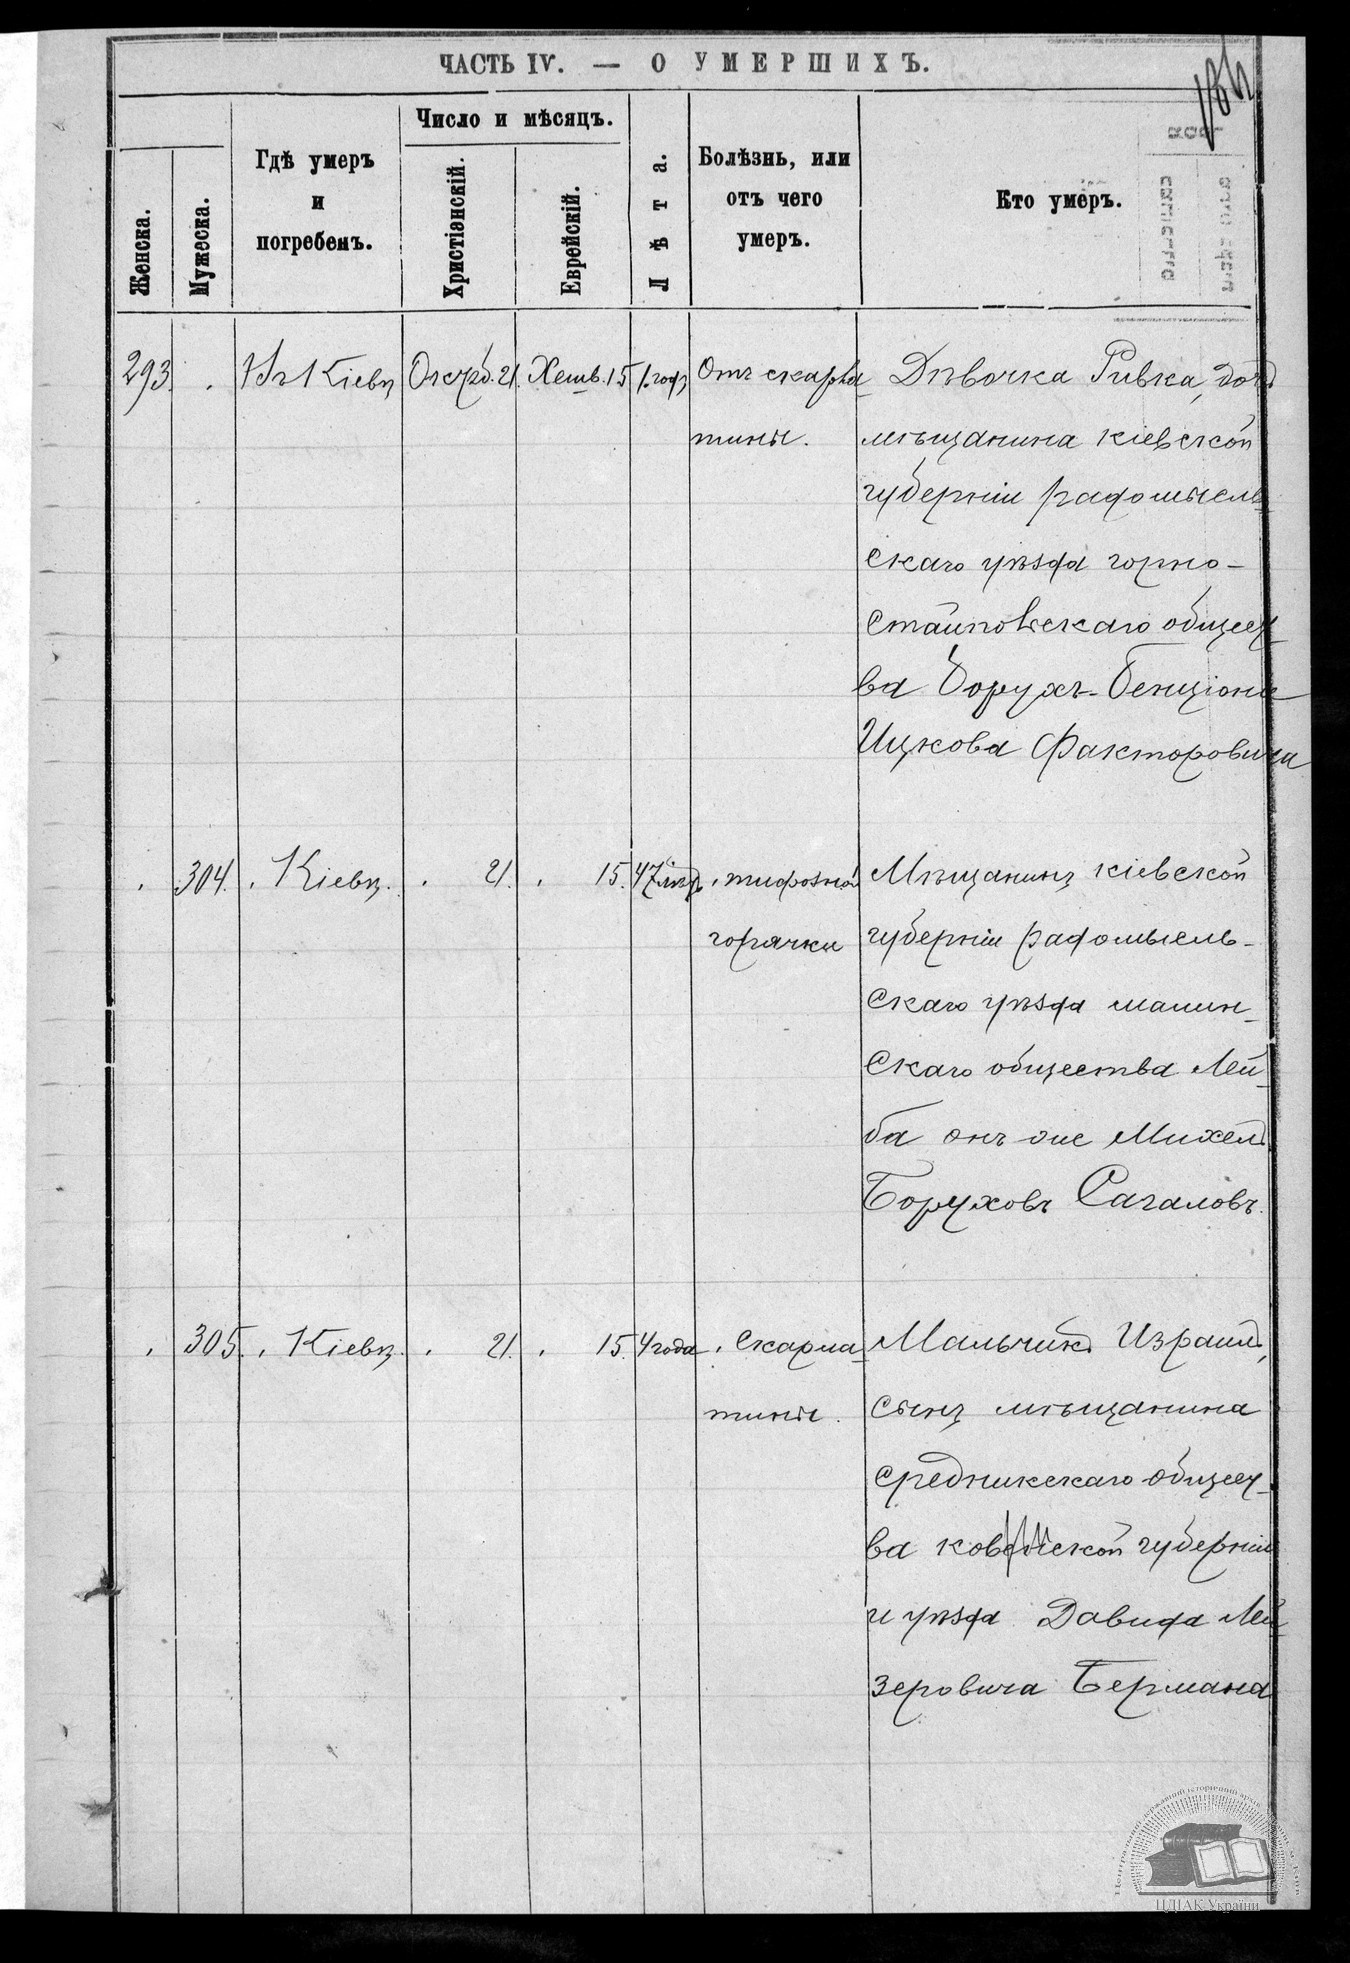 ЧАСТЬ IV. — О УМЕРШИХЪ.
Женска.
Мужеска.
Гдѣ умеръ
и
погребенъ.
Число и мѣсяцъ.
Христіянскій.
Еврейскій.
Лѣта.
Болѣзнь, или
отъ чего
умеръ.
Кто умеръ.
293. Въ Кіевѣ Октяб. 21. Хешв. 15 1. годъ Отъ скарла- Дѣвочка Ривка, дочь
тины. мѣщанина кіевской
губерніи радомысль-
скаго уѣзда горно-
стайповскаго общест-
ва Борухъ-Бенціона
Ицкова Факторовича
304. Кіевѣ. 21. 15. 47 лѣтъ тифозной Мѣщанинъ кіевской
горячки губерніи радомысль-
скаго уѣзда малин-
скаго общества Лей-
ба онъ же Михель
Боруховъ Сагаловъ.
305. Кіевѣ. 21. 15. 4 года скарла- Мальчикъ Израиль,
тины. сынъ мѣщанина
средникскаго общест-
ва ковенской губерніи
и уѣзда Давида Лей-
зеровича Бермана
ЦДІАК України